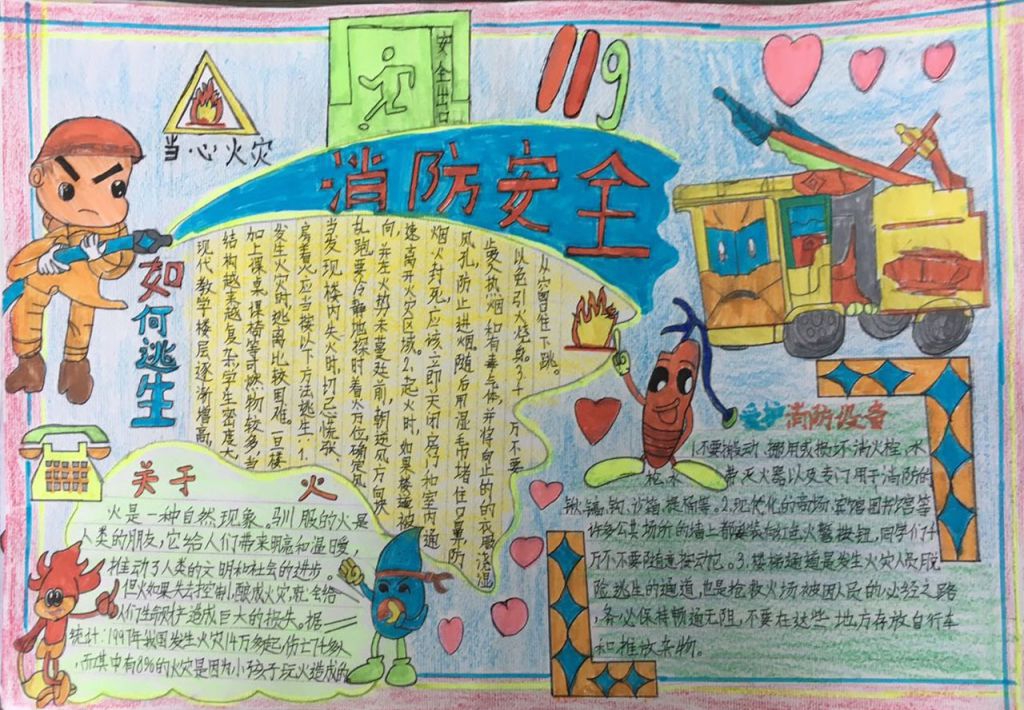 当心火灾
安全出口
119
消防安全
如何逃生
现代教学楼层逐渐增高,
结构越来越复杂,学生密度大,
加上课桌课椅等可燃物较多,当
发生火灾时,逃离比较困难。一旦楼
房着火,应当按以下方法逃生:1.
当发现楼内失火时,切忌慌张、
乱跑,要冷静地探明着火方位,确定风
向,并在火势未蔓延前,朝逆风方向快
速离开火灾区域。2.起火时,如果楼道被
烟火封死,应该立即关闭房门和室内通
风孔,防止进烟随后用湿毛巾堵住口鼻,防
热烟和有毒气体,并将身上的衣服浇湿
以免引火烧身。3.千万不要
从窗口往下跳。
关于火
火是一种自然现象。驯服的火是
人类的朋友,它给人们带来明亮和温暖,
推动了人类的文明和社会的进步。
但火如果失去控制,酿成火灾,就会给
人们生命财产造成巨大的损失。据
统计:1997年我国发生火灾14万多起,伤亡7千多人
而其中有8%的火灾是因为小孩子玩火造成的
爱护消防设备
1.不要搬动、挪用或损坏消火栓、水
枪、水带、灭火器以及专门用于消防的
锹、镐、钩、沙箱、提桶等。2.现代化的商场、宾馆图书馆等
许多公共场所的墙上都安装有红色火警按钮,同学们千
万不不要随意按动它。3.楼梯通道是发生火灾人员脱
险逃生的通道,也是抢救火场被困人民的必经之路
,务必保持畅通无阻,不要在这些地方存放自行车
和堆放杂物。